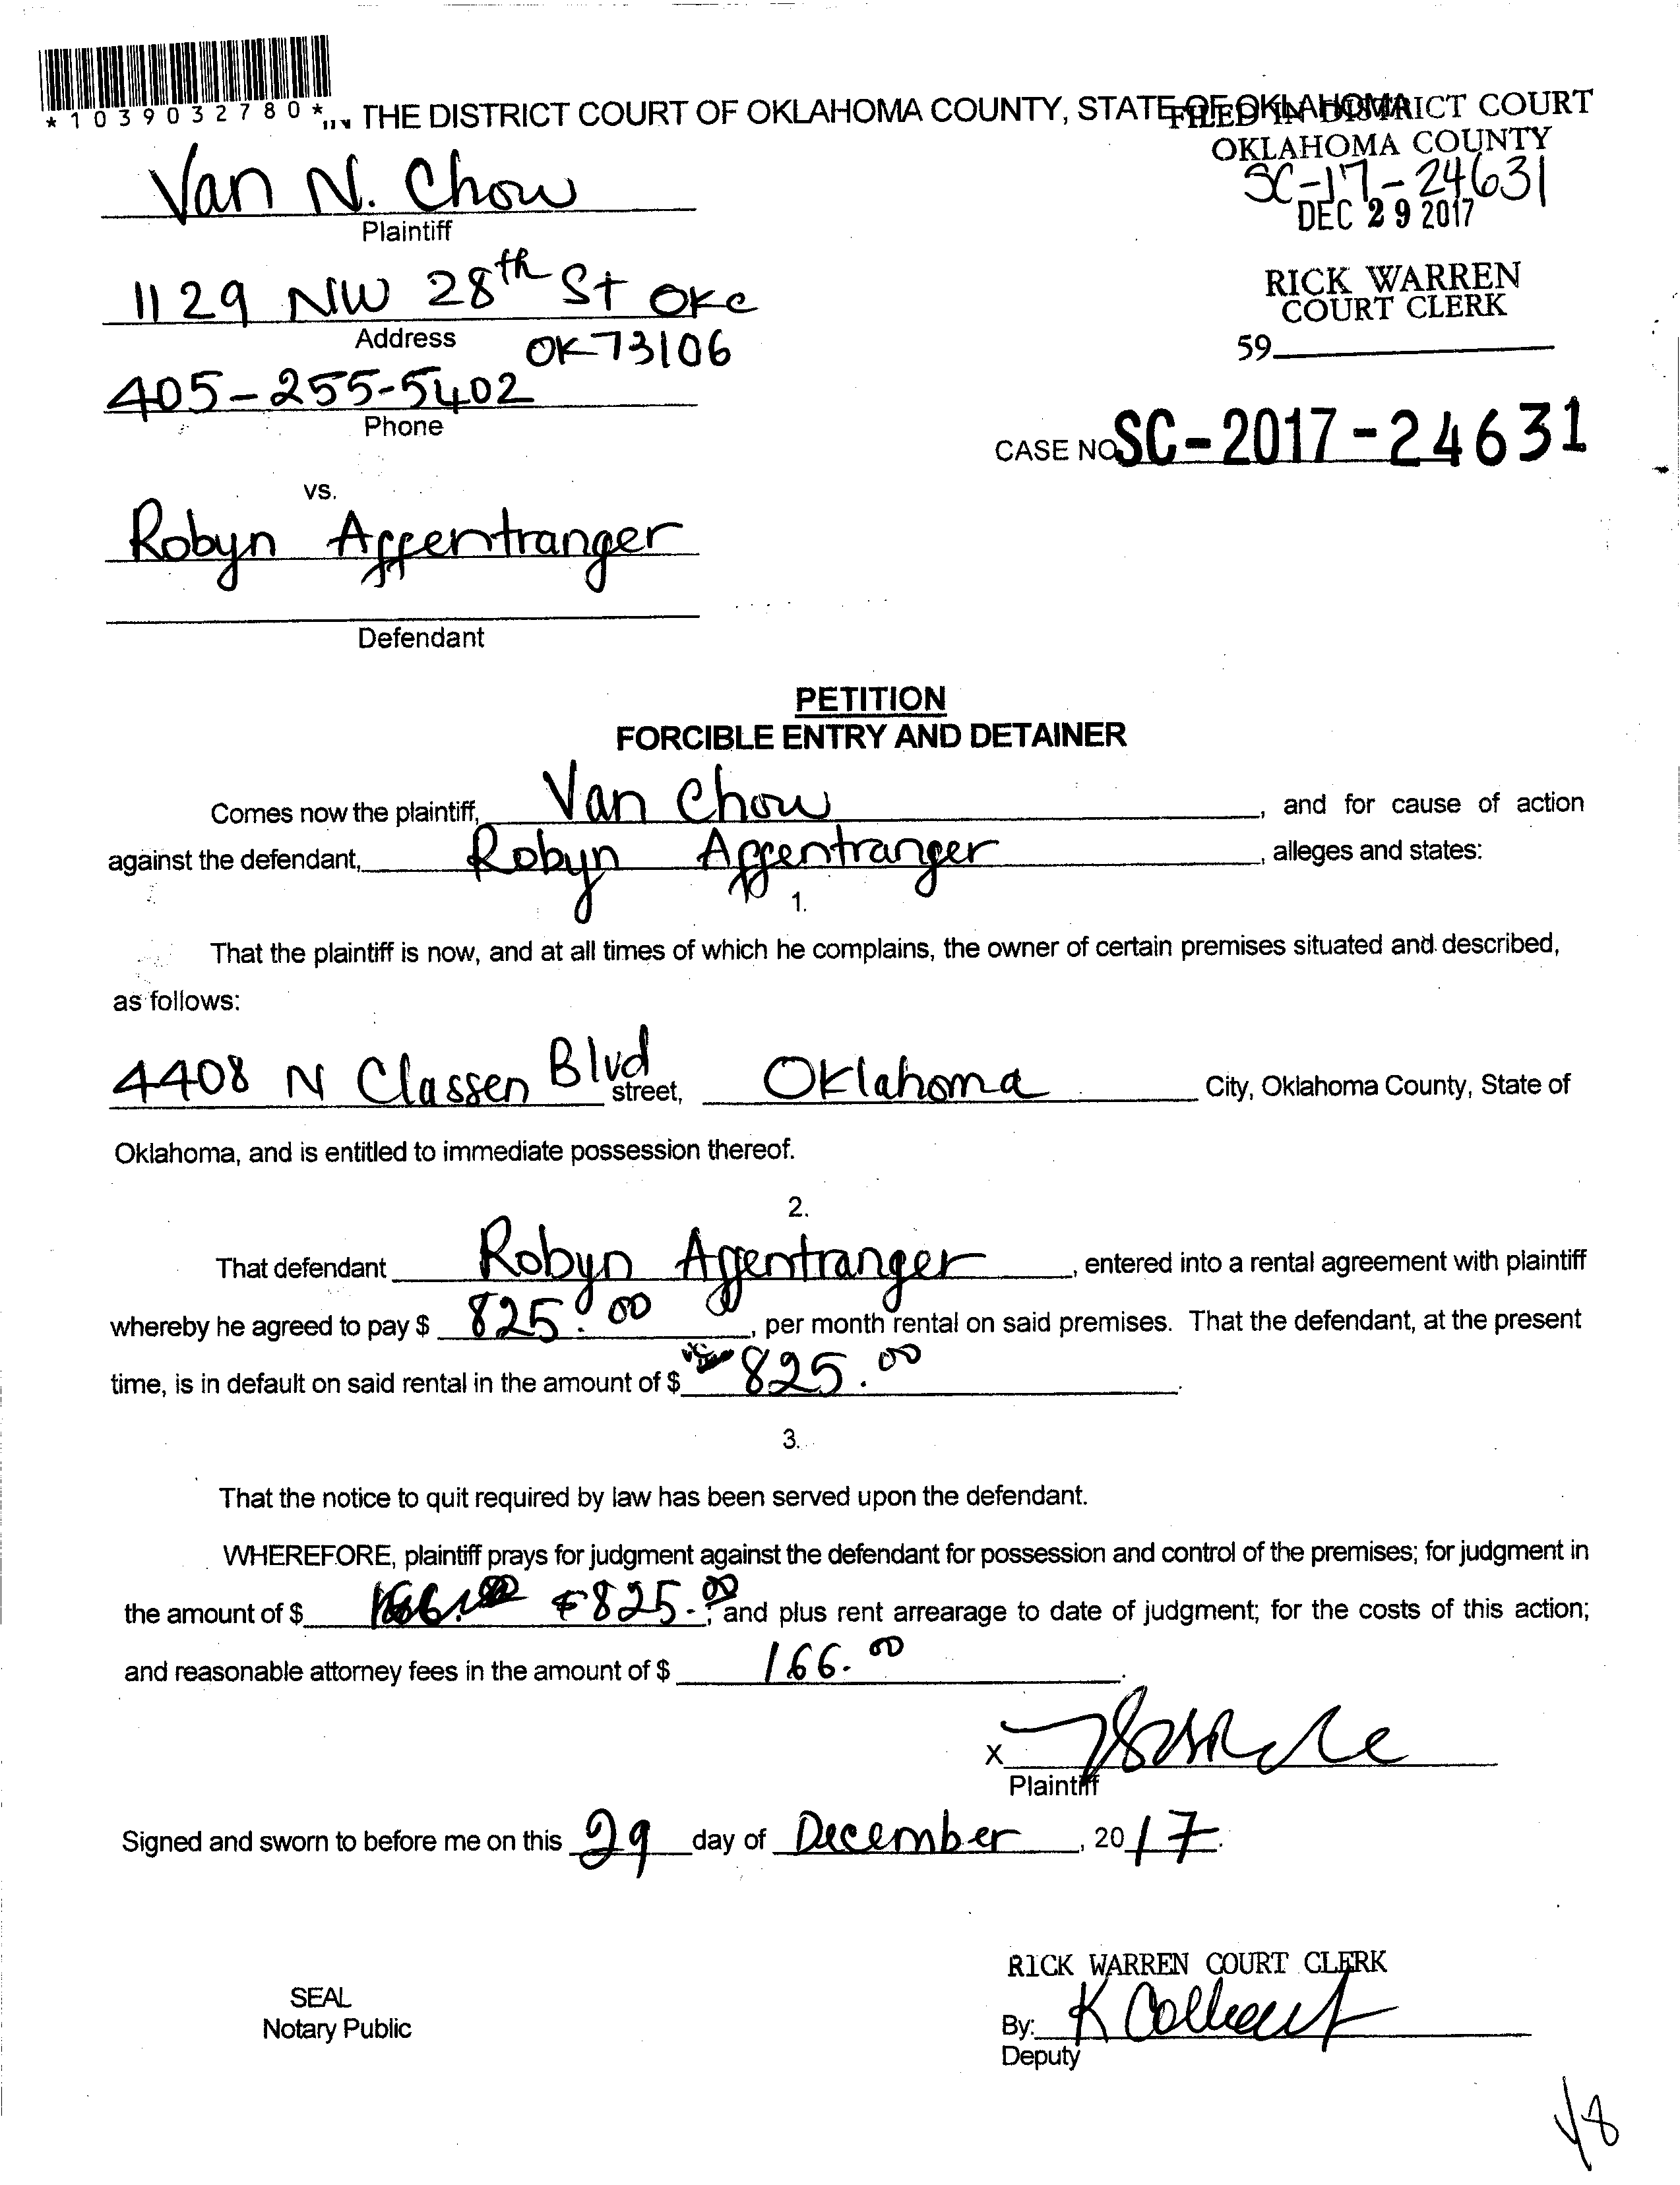 *1039032780*
THE DISTRICT COURT OF OKLAHOMA COUNTY, STATE OF OKLAHOMA
FILED IN DISTRICT COURT
OKLAHOMA COUNTY
Van N. Chow
SC-17-24631
DEC 29 2017
Plaintiff
1129 NW 28th St OKC
RICK WARREN
COURT CLERK
Address
OK 73106
59
405-255-5402
Phone
CASE NO. SC-2017-24631
vs.
Robyn Affentranger
Defendant
PETITION
FORCIBLE ENTRY AND DETAINER
Comes now the plaintiff, Van Chow, and for cause of action
against the defendant, Robyn Affentranger, alleges and states:
1.
That the plaintiff is now, and at all times of which he complains, the owner of certain premises situated and described,
as follows:
4408 N Classen Blvd street, Oklahoma City, Oklahoma County, State of
Oklahoma, and is entitled to immediate possession thereof.
2.
That defendant Robyn Affentranger, entered into a rental agreement with plaintiff
whereby he agreed to pay $ 825.00, per month rental on said premises. That the defendant, at the present
time, is in default on said rental in the amount of $ 825.00.
3.
That the notice to quit required by law has been served upon the defendant.
WHEREFORE, plaintiff prays for judgment against the defendant for possession and control of the premises; for judgment in
the amount of $ 825.00; and plus rent arrearage to date of judgment; for the costs of this action;
and reasonable attorney fees in the amount of $ 166.00.
X
Plaintiff
Signed and sworn to before me on this 29 day of December, 2017.
RICK WARREN COURT CLERK
SEAL
Notary Public
By: K
Deputy